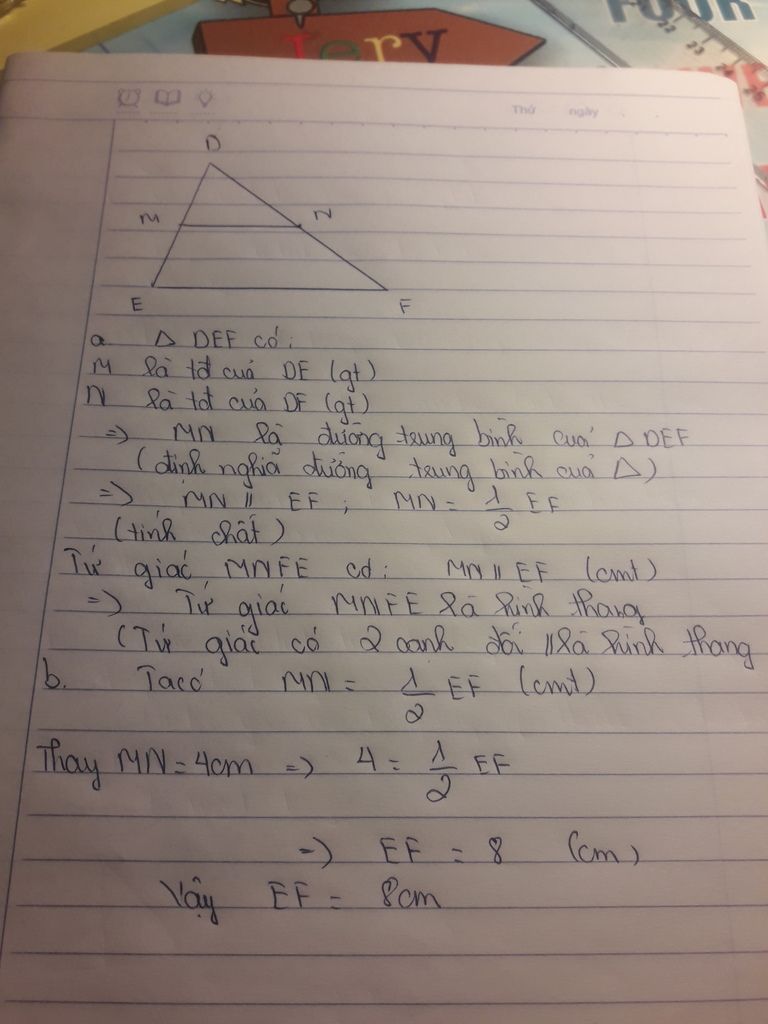 FOUR
Jery
22 23
Thứ ngày
D
M N
E F
a. △ DEF có:
M là tđ của DE (gt)
N là tđ của DF (gt)
=> MN là đường trung bình của △ DEF
(định nghĩa đường trung bình của △)
=> MN // EF ; MN = 1/2 EF
(tính chất)
Tứ giác MNFE có: MN // EF (cmt)
=> Tứ giác MNFE là hình thang
(Tứ giác có 2 cạnh đối // là hình thang
b. Ta có MN = 1/2 EF (cmt)
Thay MN = 4cm => 4 = 1/2 EF
=> EF = 8 (cm)
Vậy EF = 8cm